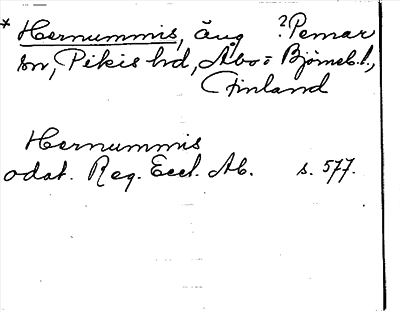 * Hernummis, äng ?Pemar
sn, Pikis hd, Åbo = Björneb. l.,
Finland
Hernummis
odat. Reg. Eccl. Ab. s. 577.